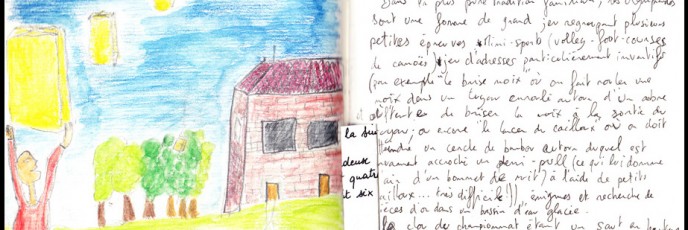 Dans la plus pure tradition familiale, les
sont une forme de grand jeu regroupant plusieurs
petites épreuves : Mini-sports (volley-foot-courses
de canoës), jeu d'adresses particulièrement inventifs
(par exemple "le brise noix" où on fait rouler une
noix dans un tuyau enroulé autour d'un arbre
de briser la noix à la sortie du
tuyau; ou encore le lancer de cailloux où on doit
un cercle de bambou autour duquel est
accroché un demi-pull (ce qui lui donne
d'un bonnet de nuit) à l'aide de petits
cailloux... très difficile!), énigmes et recherche de
pièces d'or dans un bassin d'eau glacée.
Le clou du championnat étant un saut en
la sui
deux
quatr
t six